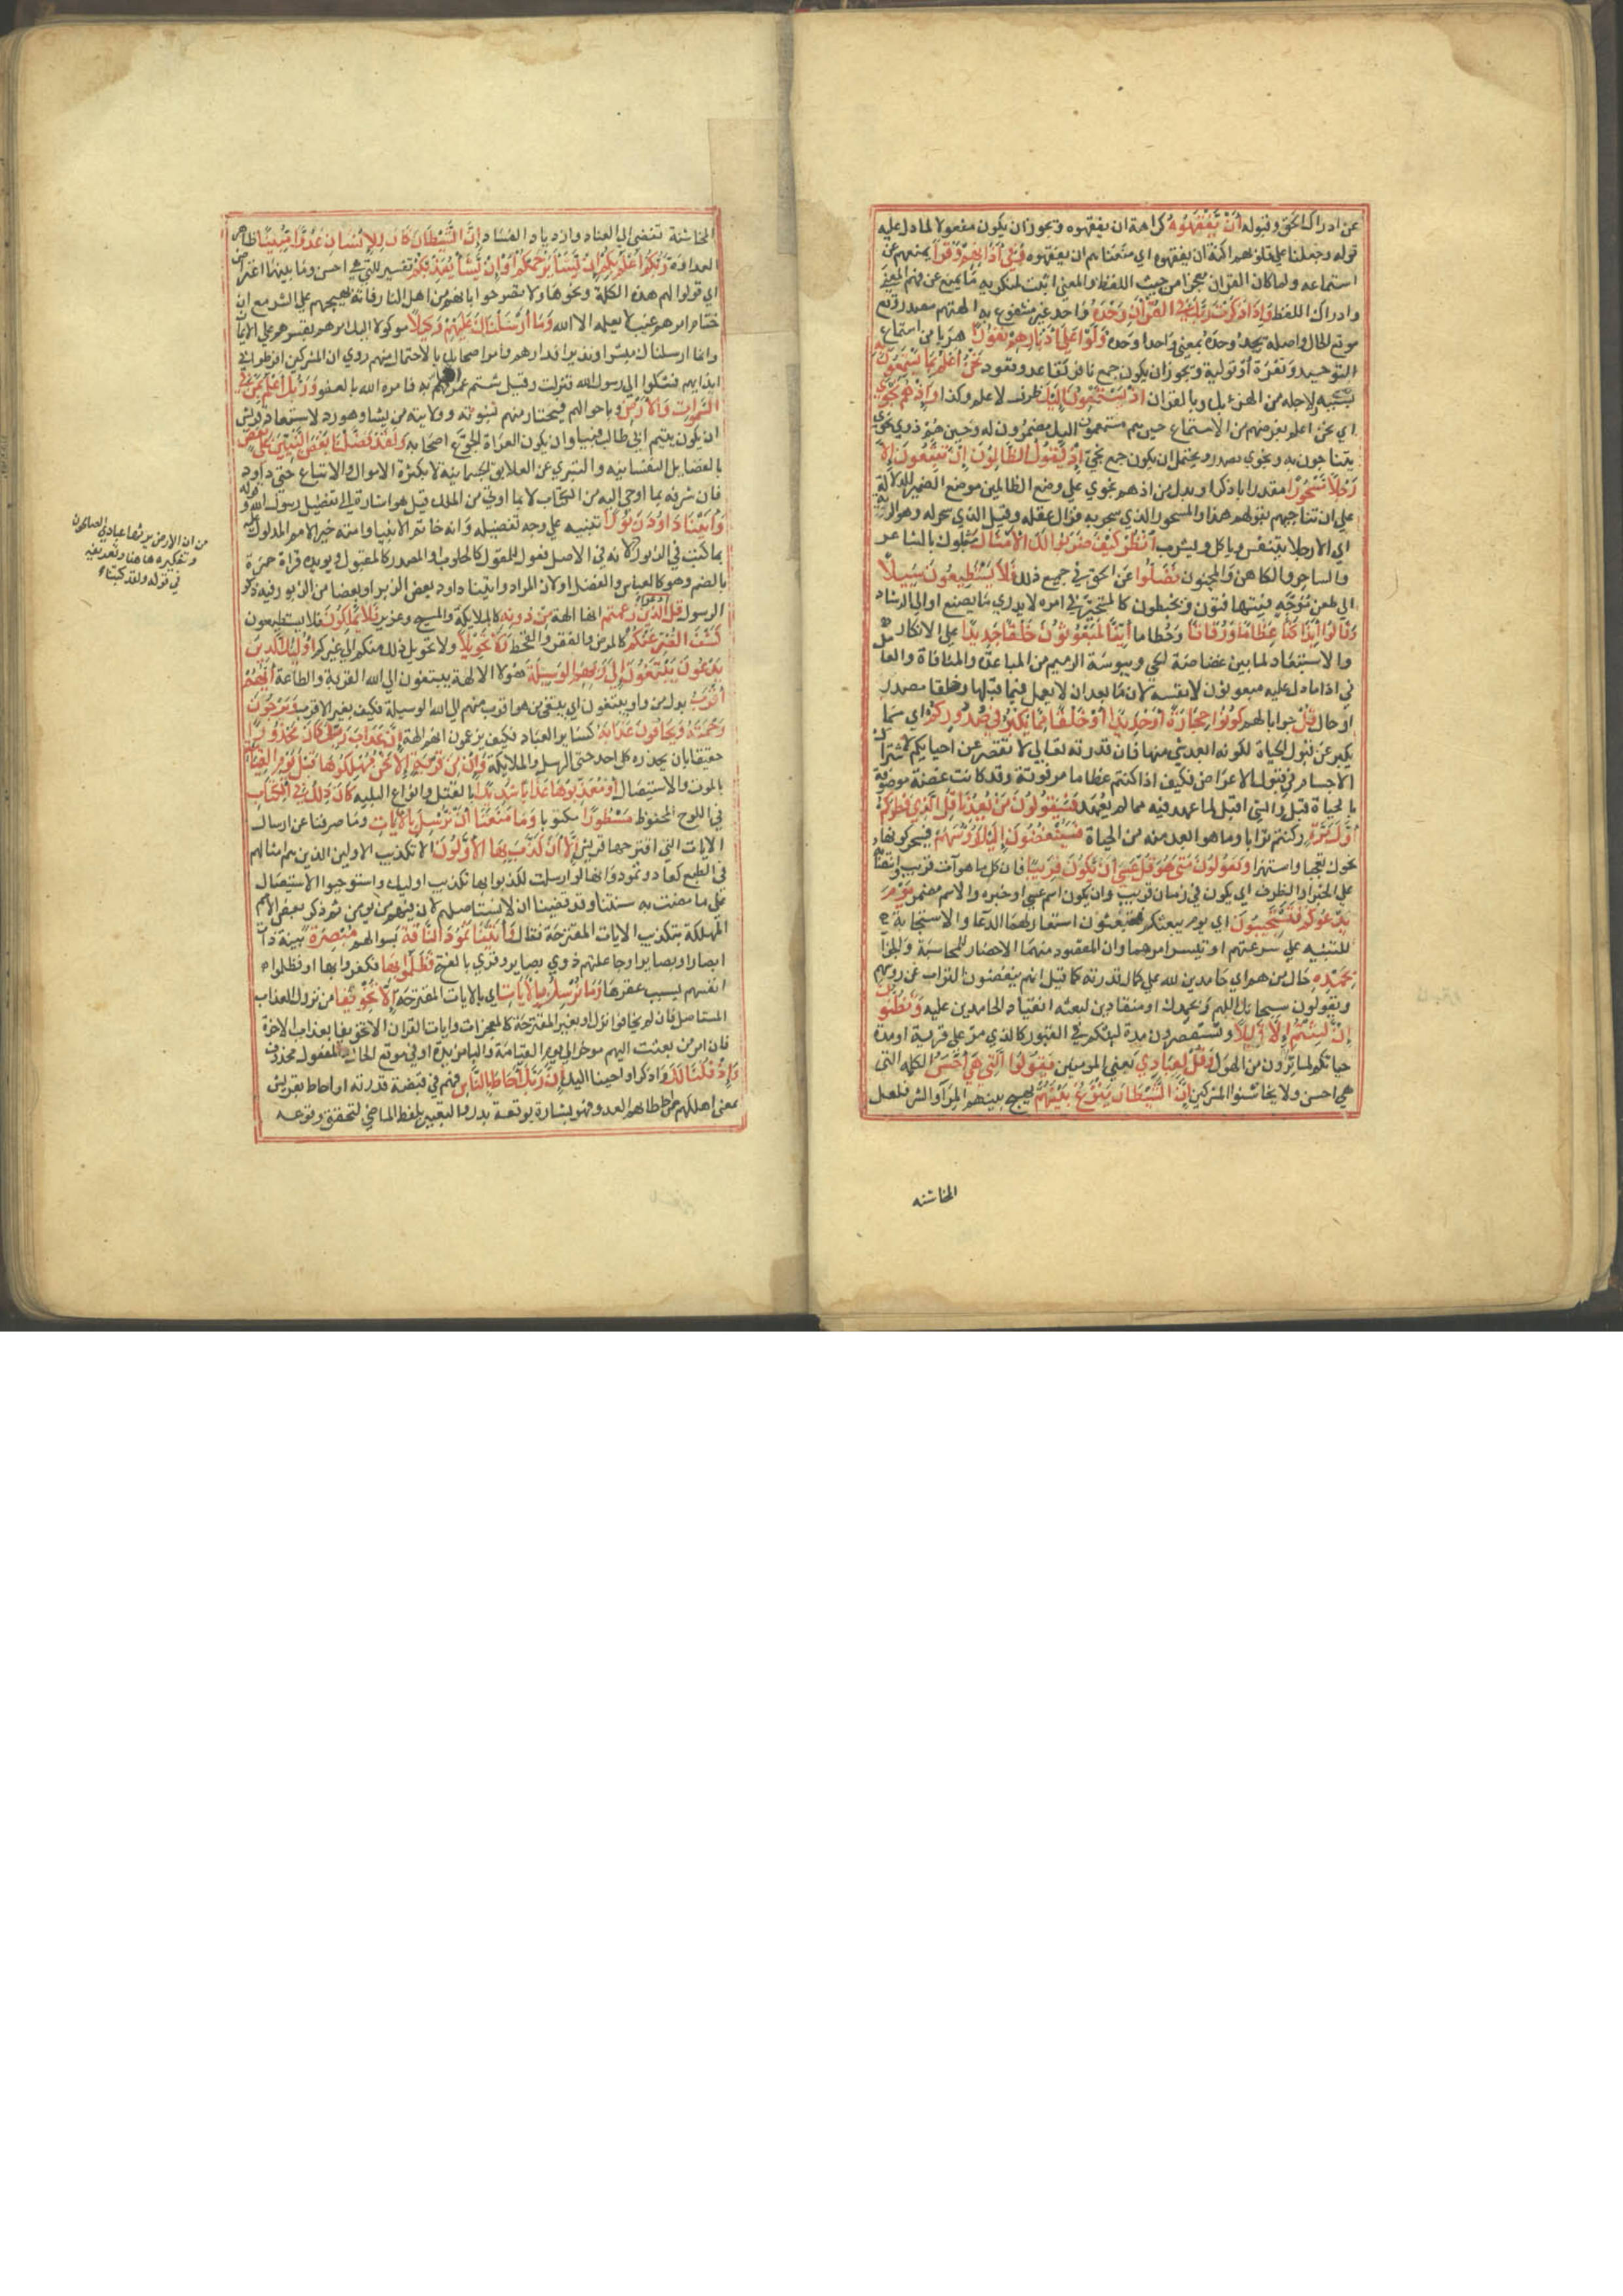 عن ادراك الحق وقبوله أَنْ يَفْقَهُوهُ كراهة ان يفقهوه ويجوز ان يكون مفعولا لما دل عليه
قوله وجعلنا على قلوبهم اكنة ان يفقهوه اي منعناهم ان يفقهوه وَفِي آذَانِهِمْ وَقْرًا يمنعهم عن
استماعه ولما كان القران معجزا من حيث اللفظ والمعنى اثبت لمنكريه ما يمنع عن فهم المعنى
وادراك اللفظ وَإِذَا ذَكَرْتَ رَبَّكَ فِي الْقُرْآنِ وَحْدَهُ واحد غير مشفوع به الهتهم مصدر وقع
موقع الحال واصله يحد وحده بمعنى واحدا وحده وَلَّوْا عَلَى أَدْبَارِهِمْ نُفُورًا هربا من استماع
التوحيد ونفرة او تولية ويجوز ان يكون جمع نافر كقاعد وقعود نَحْنُ أَعْلَمُ بِمَا يَسْتَمِعُونَ بِهِ
بسببه لاجله من الهزء بك وبالقران إِذْ يَسْتَمِعُونَ إِلَيْكَ ظرف لاعلم وكذا وَإِذْ هُمْ نَجْوَى
اي نحن اعلم بغرضهم من الاستماع حين هم مستمعون اليك مضمرون له وحين هم ذوي نجوى
يتناجون به ونجوى مصدر ويحتمل ان يكون جمع نجي إِذْ يَقُولُ الظَّالِمُونَ إِنْ تَتَّبِعُونَ إِلَّا
رَجُلًا مَسْحُورًا مقدر باذكر او بدل من اذ هم نجوى على وضع الظالمين موضع الضمير للدلالة
على ان تناجيهم بقولهم هذا والمسحور الذي سحر به فزال عقله وقيل الذي سحر له وهو الرية
اي الا رجلا يتنفس وياكل ويشرب انْظُرْ كَيْفَ ضَرَبُوا لَكَ الْأَمْثَالَ مثلوك بالشاعر
والساحر والكاهن والمجنون فَضَلُّوا عن الحق في جميع ذلك فَلَا يَسْتَطِيعُونَ سَبِيلًا
الى طعن موجه فيتهافتون ويخبطون كالمتحير في امره لا يدري ما يصنع او الى الرشاد
وَقَالُوا أَئِذَا كُنَّا عِظَامًا وَرُفَاتًا وحطاما أَئِنَّا لَمَبْعُوثُونَ خَلْقًا جَدِيدًا على الانكار
والاستبعاد لما بين غضاضة الحي ويبوسة الرميم من المباعدة والمنافاة والعامل
في اذا ما دل عليه مبعوثون لا نفسه لان ما بعد ان لا يعمل فيما قبلها وخلقا مصدر
او حال قُلْ جوابا لهم كُونُوا حِجَارَةً أَوْ حَدِيدًا أَوْ خَلْقًا مِمَّا يَكْبُرُ فِي صُدُورِكُمْ اي مما
يكبر عن قبول الحياة لكونه ابعد شي منها فان قدرته تعالى لا تقصر عن احيايكم لاشتراك
الاجسام في قبول الاعراض فكيف اذا كنتم عظاما مرفوتة وقد كانت غضة موصوفة
بالحياة قبل والشي اقبل لما عهد فيه مما لم يعهد فَسَيَقُولُونَ مَنْ يُعِيدُنَا قُلِ الَّذِي فَطَرَكُمْ
أَوَّلَ مَرَّةٍ وكنتم ترابا وما هو ابعد منه من الحياة فَسَيُنْغِضُونَ إِلَيْكَ رُءُوسَهُمْ فسيحركونها
نحوك تعجبا واستهزا وَيَقُولُونَ مَتَى هُوَ قُلْ عَسَى أَنْ يَكُونَ قَرِيبًا فان كل ما هو آت قريب وانتصابه
على الخبر او الظرف اي يكون في زمان قريب وان يكون اسم عسى او خبره والاسم مضمر يَوْمَ
يَدْعُوكُمْ فَتَسْتَجِيبُونَ اي يوم يبعثكم فتبعثون استعار لهما الدعا والاستجابة
للتنبيه على سرعتهما وتيسر امرهما وان المقصود منهما الاحضار للمحاسبة والجزا
بِحَمْدِهِ حال منهم اي حامدين لله على كمال قدرته كما قيل انهم ينفضون التراب عن روسهم
ويقولون سبحانك اللهم وبحمدك او منقادين لبعثه انقياد الحامدين عليه وَتَظُنُّونَ
إِنْ لَبِثْتُمْ إِلَّا قَلِيلًا وتستقصرون مدة لبثكم في القبور كالذي مر على قرية او مدة
حياتكم لما ترون من الهول وَقُلْ لِعِبَادِي يعني المومنين يَقُولُوا الَّتِي هِيَ أَحْسَنُ الكلمة التي
هي احسن ولا يخاشنوا المشركين إِنَّ الشَّيْطَانَ يَنْزَغُ بَيْنَهُمْ يهيج بينهم المرآ والشر فلعل
المخاشنه
المخاشنة تفضي الى العناد وازدياد الفساد إِنَّ الشَّيْطَانَ كَانَ لِلْإِنْسَانِ عَدُوًّا مُبِينًا ظاهر
العداوة رَبُّكُمْ أَعْلَمُ بِكُمْ إِنْ يَشَأْ يَرْحَمْكُمْ أَوْ إِنْ يَشَأْ يُعَذِّبْكُمْ تفسير للتي هي احسن وما بينهما اعتراض
اي قولوا لهم هذه الكلمة ونحوها ولا تصرحوا بانهم من اهل النار فانه يهيجهم على الشر مع ان
ختام امرهم غيب لا يعلمه الا الله وَمَا أَرْسَلْنَاكَ عَلَيْهِمْ وَكِيلًا موكولا اليك امرهم تقسرهم على الايمان
وانما ارسلناك مبشرا ونذيرا فدارهم وامر اصحابك بالاحتمال منهم روي ان المشركين افرطوا في
ايذايهم فشكوا الى رسول الله فنزلت وقيل شتم عمر رجل منهم فهم به فامره الله بالعفو وَرَبُّكَ أَعْلَمُ بِمَنْ فِي
السَّمَوَاتِ وَالْأَرْضِ وباحوالهم فيختار منهم لنبوته وولايته من يشا وهو رد لاستبعاد قريش
ان يكون يتيم ابي طالب نبيا وان يكون العراة الجوع اصحابه وَلَقَدْ فَضَّلْنَا بَعْضَ النَّبِيِّينَ عَلَى بَعْضٍ
بالفضايل النفسانية والتبري عن العلايق الجسمانية لا بكثرة الاموال والاتباع حتى داود
فان شرفه بما اوحى اليه من الكتاب لا بما اوتي من الملك قيل هو اشارة الى تفضيل رسول الله وقوله
وَآتَيْنَا دَاوُدَ زَبُورًا تنبيه على وجه تفضيله وانه خاتم الانبيا وامته خير الامم المدلول عليه
بما كتب في الزبور لانه في الاصل فعول للمفعول كالحلوب او المصدر كالقبول ويويده قراة حمزة
بالضم وهو كالعباس والفضل او لان المراد واتينا داود بعض الزبر او بعضا من الزبور فيه ذكر
الرسول قُلِ ادْعُوا الَّذِينَ زَعَمْتُمْ انها الهة مِنْ دُونِهِ كالملايكة والمسيح وعزير فَلَا يَمْلِكُونَ فلا يستطيعون
كَشْفَ الضُّرِّ عَنْكُمْ كالمرض والفقر والقحط وَلَا تَحْوِيلًا ولا تحويل ذلك منكم الى غيركم أُولَئِكَ الَّذِينَ
يَدْعُونَ يَبْتَغُونَ إِلَى رَبِّهِمُ الْوَسِيلَةَ هولا الالهة يبتغون الى الله القربة والطاعة أَيُّهُمْ
أَقْرَبُ بدل من واو يبتغون اي يبتغي من هو اقرب منهم الى الله الوسيلة فكيف بغير الاقرب وَيَرْجُونَ
رَحْمَتَهُ وَيَخَافُونَ عَذَابَهُ كساير العباد فكيف يزعمون انهم الهة إِنَّ عَذَابَ رَبِّكَ كَانَ مَحْذُورًا
حقيقا بان يحذره كل احد حتى الرسل والملايكة وَإِنْ مِنْ قَرْيَةٍ إِلَّا نَحْنُ مُهْلِكُوهَا قَبْلَ يَوْمِ الْقِيَامَةِ
بالموت والاستيصال أَوْ مُعَذِّبُوهَا عَذَابًا شَدِيدًا بالقتل وانواع البلية كَانَ ذَلِكَ فِي الْكِتَابِ
في اللوح المحفوظ مَسْطُورًا مكتوبا وَمَا مَنَعَنَا أَنْ نُرْسِلَ بِالْآيَاتِ وما صرفنا عن ارسال
الايات التي اقترحها قريش إِلَّا أَنْ كَذَّبَ بِهَا الْأَوَّلُونَ الا تكذيب الاولين الذين هم امثالهم
في الطبع كعاد وثمود وانها لو ارسلت لكذبوا بها تكذيب اوليك واستوجبوا الاستيصال
على ما مضت به سنتنا وقد قضينا ان لا نستاصلهم لان فيهم من يومن ثم ذكر بعض الامم
المهلكة بتكذيب الايات المقترحة فقال وَآتَيْنَا ثَمُودَ النَّاقَةَ بسوالهم مُبْصِرَةً بينة ذات
ابصار او بصاير او جاعلتهم ذوي بصاير وقري بالفتح فَظَلَمُوا بِهَا فكفروا بها او فظلموا
انفسهم بسبب عقرها وَمَا نُرْسِلُ بِالْآيَاتِ اي بالايات المقترحة إِلَّا تَخْوِيفًا من نزول العذاب
المستاصل فان لم يخافوا نزل او بغير المقترحة كالمعجزات وايات القران الا تخويفا بعذاب الاخرة
فان امر من بعثت اليهم موخر الى يوم القيامة والبا مزيدة او في موقع الحال والمفعول محذوف
وَإِذْ قُلْنَا لَكَ واذكر اذ اوحينا اليك إِنَّ رَبَّكَ أَحَاطَ بِالنَّاسِ فهم في قبضة قدرته او احاط بقريش
بمعنى اهلكهم من احاط بهم العدو فهو بشارة بوقعة بدر والتعبير بلفظ الماضي لتحقق وقوعه
من ان الارض يرثها عبادي الصالحون
وتنكيره هاهنا وتعريفه
في قوله ولقد كتبنا